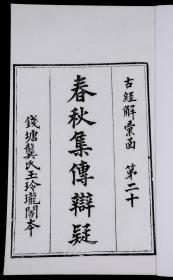 古經解彙函 第二十
春秋集傳辯疑
錢塘龔氏玉玲瓏閣本